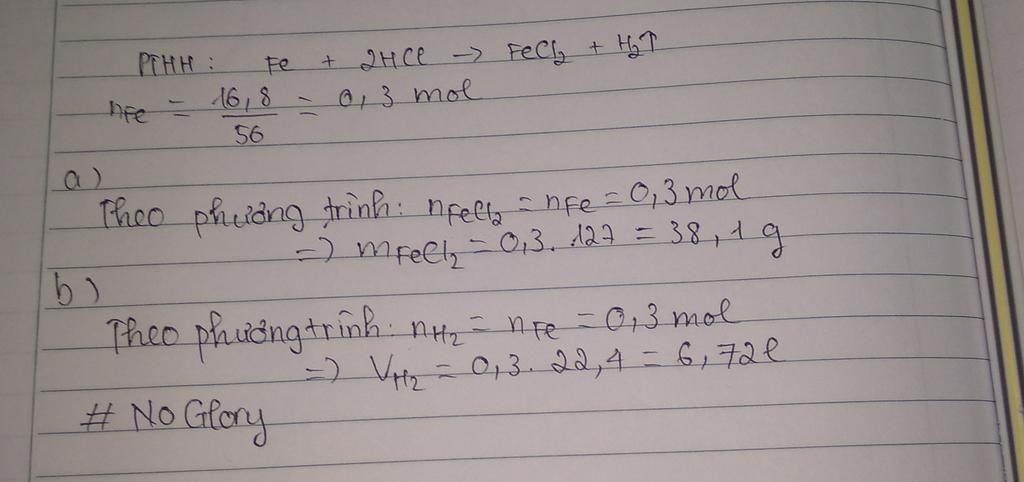 PTHH: Fe + 2HCl → FeCl₂ + H₂↑
nFe = 16,8/56 = 0,3 mol
a)
Theo phương trình: nFeCl₂ = nFe = 0,3 mol
=> mFeCl₂ = 0,3 . 127 = 38,1 g
b)
Theo phương trình: nH₂ = nFe = 0,3 mol
=> VH₂ = 0,3 . 22,4 = 6,72 l
# No Glory